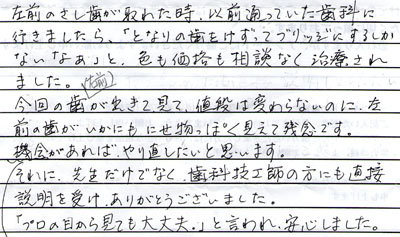 左前のさし歯が取れた時、以前通っていた歯科に
行きましたら、「となりの歯をけずってブリッジにするしか
ないなあ」と、色も価格も相談なく治療され
ました。
(右前)
今回の歯が出きて見て、値段は変わらないのに、左
前の歯がいかにもにせ物っぽく見えて残念です。
機会があれば、やり直したいと思います。
それに、先生だけでなく、歯科技工師の方にも直接
説明を受け、ありがとうございました。
「プロの目から見ても大丈夫。」と言われ、安心しました。